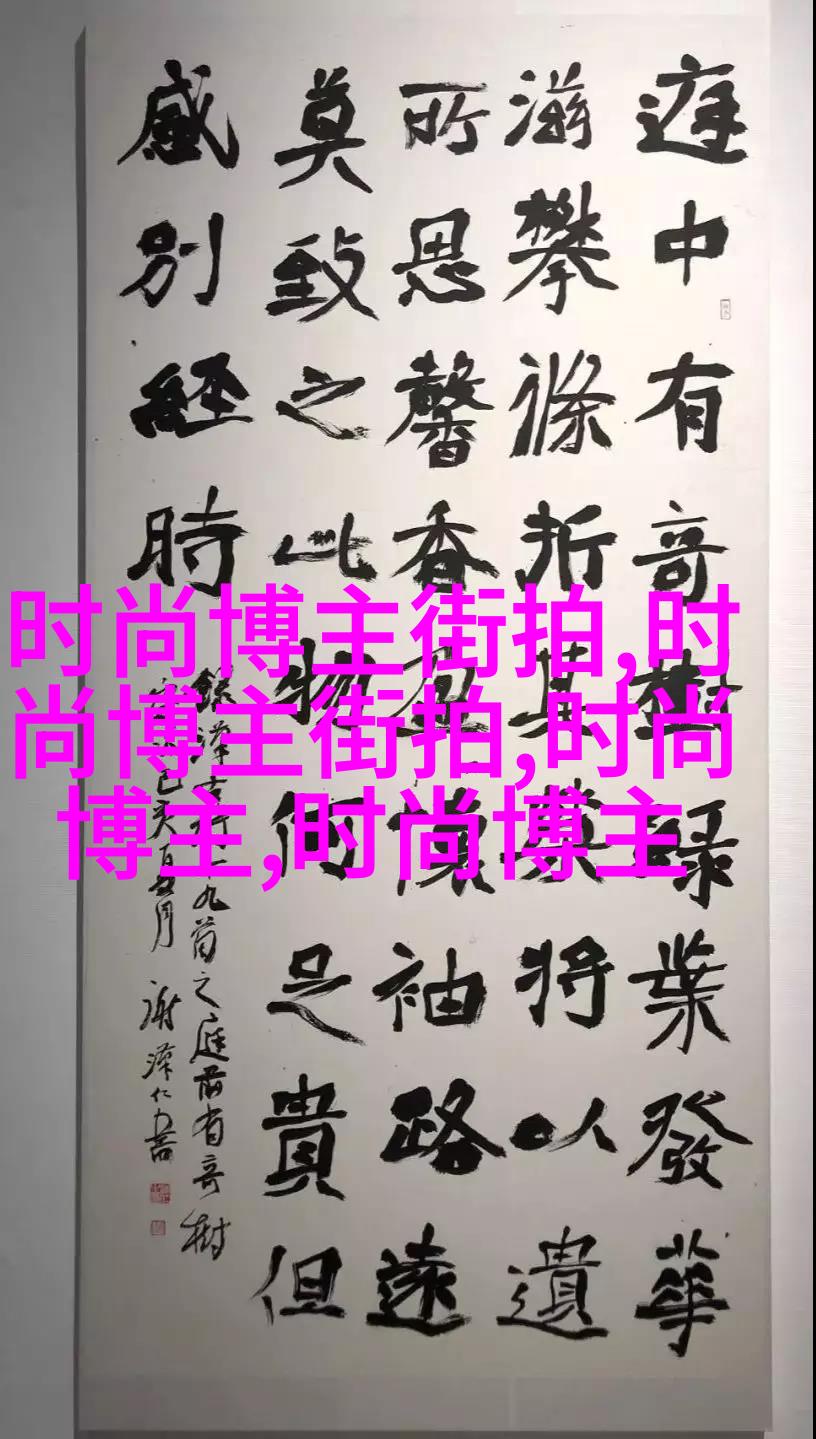 庭中有竒樹緑葉發華
滋攀條折其榮將以遺
所思馨香盈懷袖路遠
莫致之此物何足貴但
感別經時
九首之庭前有竒樹
己亥夏月 謝澤仁書
时尚博主街拍,时
尚博主街拍,时尚
博主,时尚博主